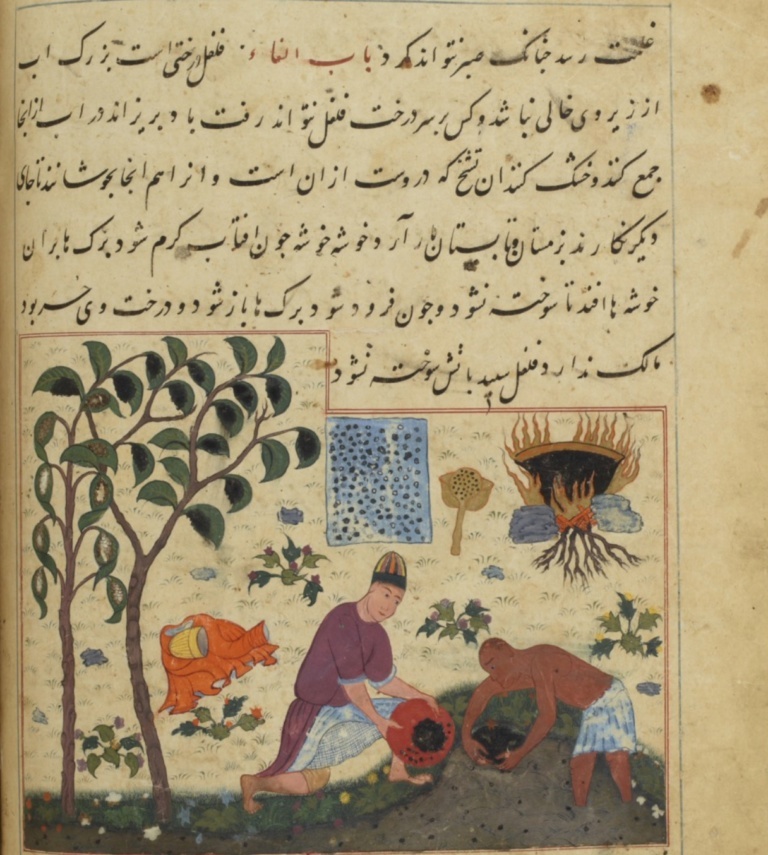 غلبت رسد چنانک صبر نتواند کرد باب الفاء فلفل درختی است بزرک اب
از زیر وی خالی نباشد و کس بر سر درخت فلفل نتواند رفت باد بریزاند در اب از انجا
جمع کنند و خشک کنند ان تشنج که دروست از ان است و انرا هم انجا بجوشانند تا جای
دیکر نکارند بزمستان و تابستان بار آرد خوشه خوشه جون افتاب کرم شود برک ها بر ان
خوشه ها افتد تا سوخته نشود و جون فرو شود برک ها باز شود و درخت وی بود
مالک ندارد و فلفل سپید باتش سوخته نشود